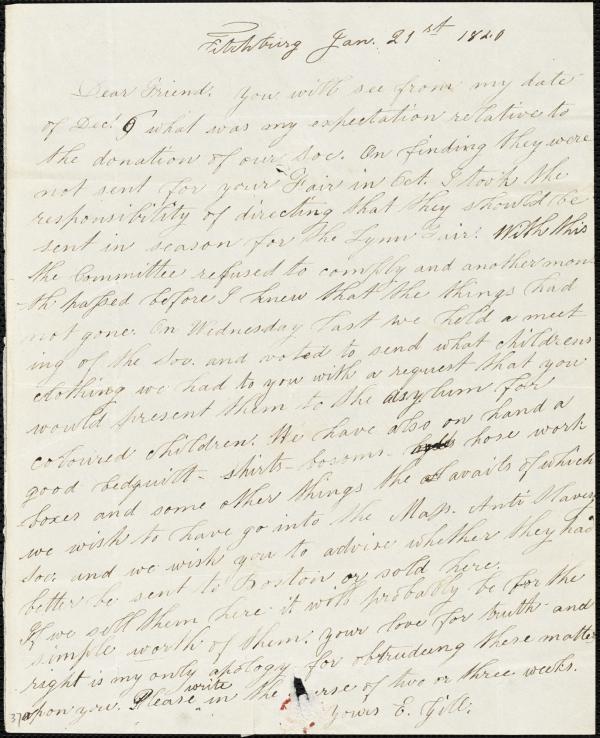 Fitchburg Jan. 21st 1840
Dear Friend: You will see from my date
of Dec! 6 what was my expectation relative to
the donation of our Soc. On finding they were
not sent for your Fair in Oct. I took the
responsibility of directing that they should be
sent in season for the Lynn Fair! With this
the Committee refused to comply and another mon-
th passed before I knew that the things had
not gone. On Wednesday last we held a meet
ing of the Soc. and voted to send what childrens
clothing we had to you with a request that you
would present them to the asylum for
coloured children. We have also on hand a
good bedquilt - shirts - bosoms - hose work
boxes and some other things the avails of which
we wish to have go into the Mass. Anti Slavery
Soc. and we wish you to advise whether they had
better be sent to Boston or sold here.
If we sell them here it will probably be for the
simple worth of them. Your love for truth and
right is my only apology for obtrudeing these matter
upon you. Please write in the course of two or three weeks.
Yours E. Gill.
37a